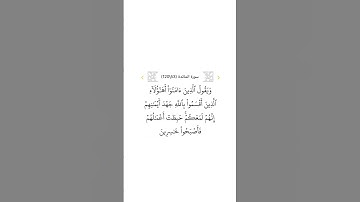 سورة المائدة (120\53)
وَيَقُولُ ٱلَّذِينَ ءَامَنُوٓا۟ أَهَـٰٓؤُلَآءِ
ٱلَّذِينَ أَقْسَمُوا۟ بِٱللَّهِ جَهْدَ أَيْمَـٰنِهِمْ
إِنَّهُمْ لَمَعَكُمْ حَبِطَتْ أَعْمَـٰلُهُمْ
فَأَصْبَحُوا۟ خَـٰسِرِينَ